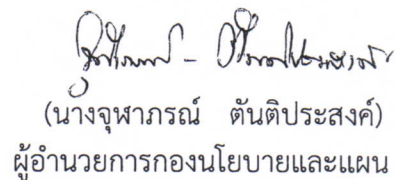 (นางจุฬาภรณ์ ตันติประสงค์)
ผู้อำนวยการกองนโยบายและแผน